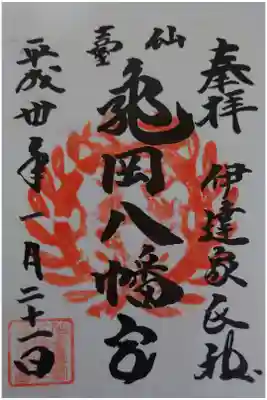 奉拝
伊達家氏神
仙臺
龜岡八幡宮
平成卅年一月二十一日